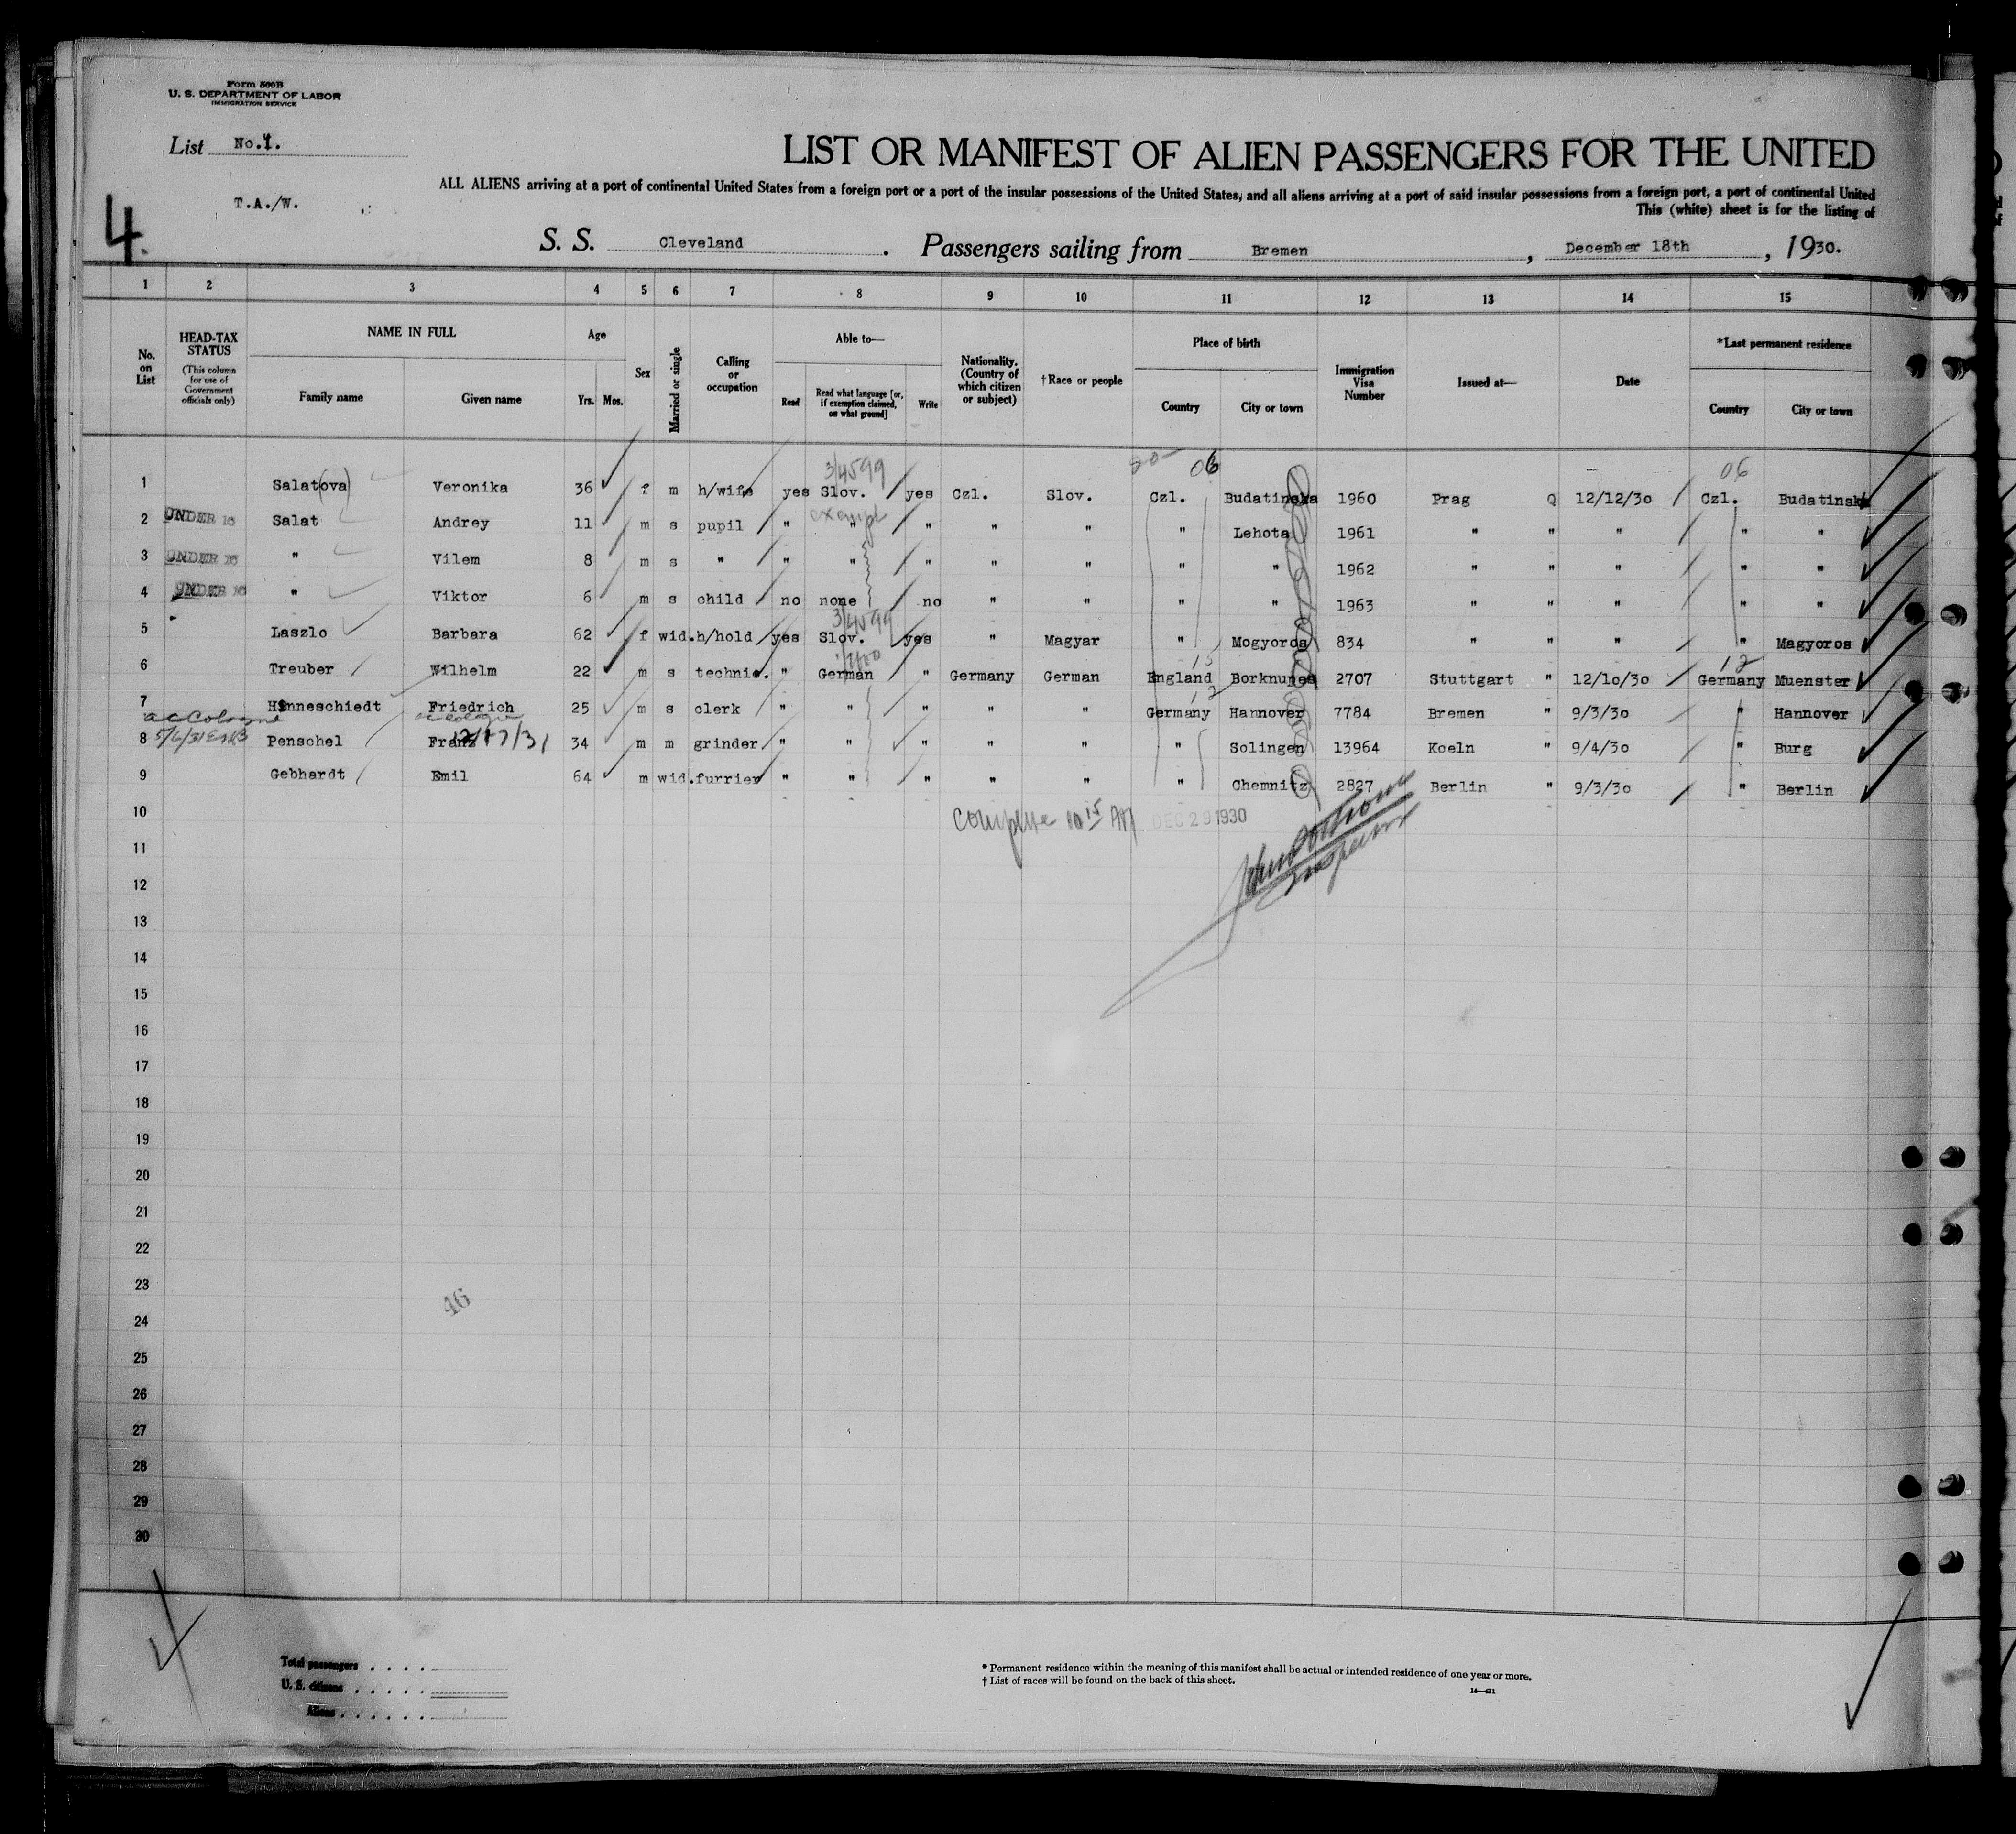 Form 500B
U. S. DEPARTMENT OF LABOR
IMMIGRATION SERVICE
List No.4.
LIST OR MANIFEST OF ALIEN PASSENGERS FOR THE UNITED
ALL ALIENS arriving at a port of continental United States from a foreign port or a port of the insular possessions of the United States, and all aliens arriving at a port of said insular possessions from a foreign port, a port of continental United
T.A./W.
This (white) sheet is for the listing of
4
S. S. Cleveland. Passengers sailing from Bremen, December 18th, 1930.
1 2 3 4 5 6 7 8 9 10 11 12 13 14 15
No. on List
HEAD-TAX STATUS
(This column for use of Government officials only)
NAME IN FULL
Family name Given name
Age
Yrs. Mos.
Sex
Married or single
Calling or occupation
Able to—
Read Read what language [or, if exemption claimed, on what ground] Write
Nationality. (Country of which citizen or subject)
†Race or people
Place of birth
Country City or town
Immigration Visa Number
Issued at—
Date
*Last permanent residence
Country City or town
3/4599 20 06 06
1 Salat(ova) Veronika 36 f m h/wife yes Slov. yes Czl. Slov. Czl. Budatinska 1960 Prag Q 12/12/30 Czl. Budatinska
exempt
2 UNDER 16 Salat Andrey 11 m s pupil " " " " " " Lehota 1961 " " " " "
3 UNDER 16 " Vilem 8 m s " " " " " " " " 1962 " " " " "
4 UNDER 16 " Viktor 6 m s child no none no " " " " 1963 " " " " "
3/4599
5 Laszlo Barbara 62 f wid. h/hold yes Slov. yes " Magyar " Mogyoros 834 " " " " Magyoros
15 12
6 Treuber Wilhelm 22 m s technic. " German " Germany German England Borknunes 2707 Stuttgart " 12/10/30 Germany Muenster
12
7 Hinneschiedt Friedrich 25 m s clerk " " " " " Germany Hannover 7784 Bremen " 9/3/30 " Hannover
ac Cologne
8 Penschel Franz 12/17/31 34 m m grinder " " " " " " Solingen 13964 Koeln " 9/4/30 " Burg
9 Gebhardt Emil 64 m wid. furrier " " " " " " Chemnitz 2827 Berlin " 9/3/30 " Berlin
10 complete 10 15 AM DEC 29 1930
11
Inspector
12
13
14
15
16
17
18
19
20
21
22
23
46
24
25
26
27
28
29
30
Total passengers . . . .
U. S. citizens . . . . .
Aliens . . . . . .
* Permanent residence within the meaning of this manifest shall be actual or intended residence of one year or more.
† List of races will be found on the back of this sheet.